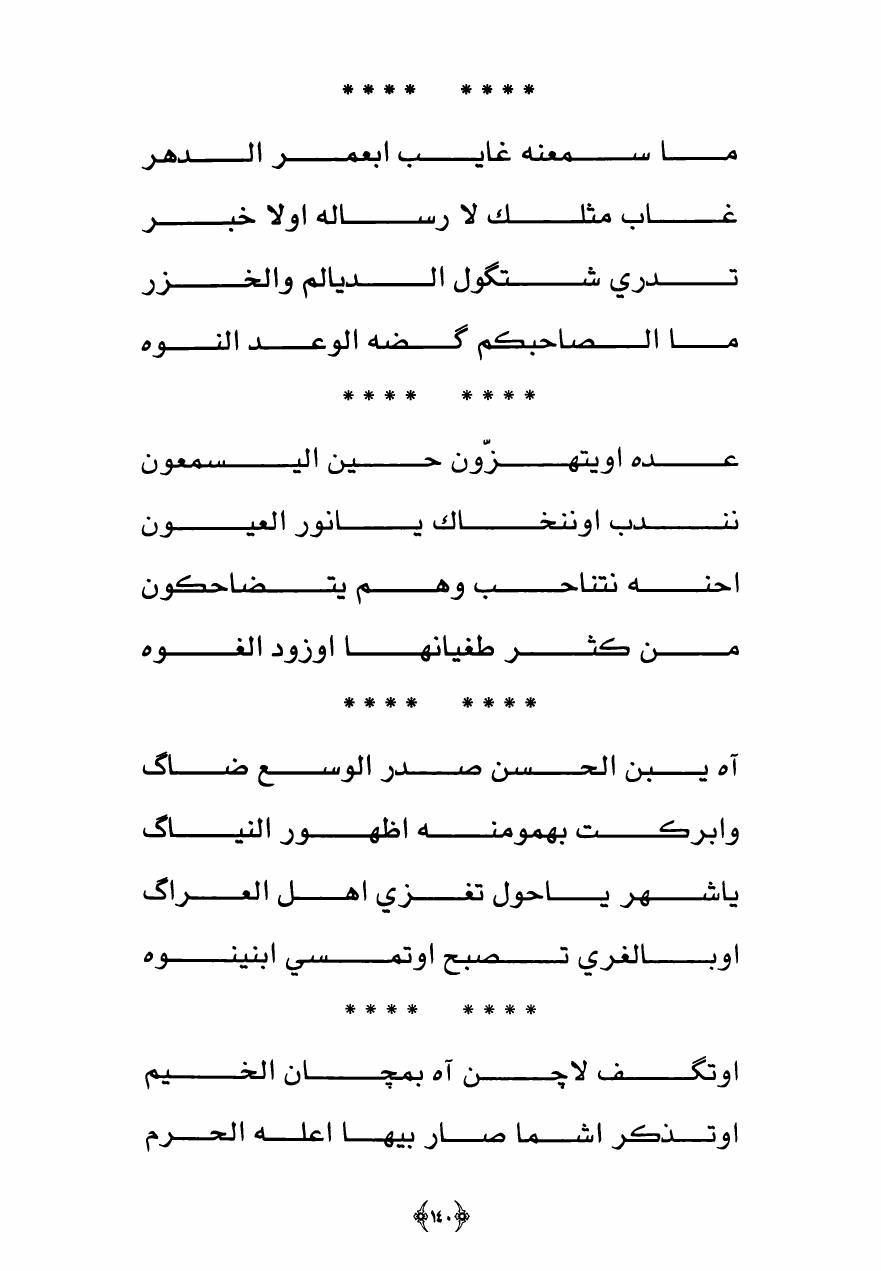 **** ****
ما سمعنه غايب ابعمر الدهر
غاب مثلك لا رساله اولا خبر
تدري شتگول الديالم والخزر
ما الصاحبكم گضه الوعد النوه
**** ****
عده اويتهزّون حين اليسمعون
نندب اوننخاك يانور العيون
احنه نتناحب وهم يتضاحكون
من كثر طغيانها اوزود الغوه
**** ****
آه يبن الحسن صدر الوسع ضاگ
وابركت بهمومنه اظهور النياگ
ياشهر ياحول تغزي اهل العراگ
اوبالغري تصبح اوتمسي ابنينوه
**** ****
اوتگف لاچن آه بمچان الخيم
اوتذكر اشما صار بيها اعله الحرم
﴿١٤٠﴾